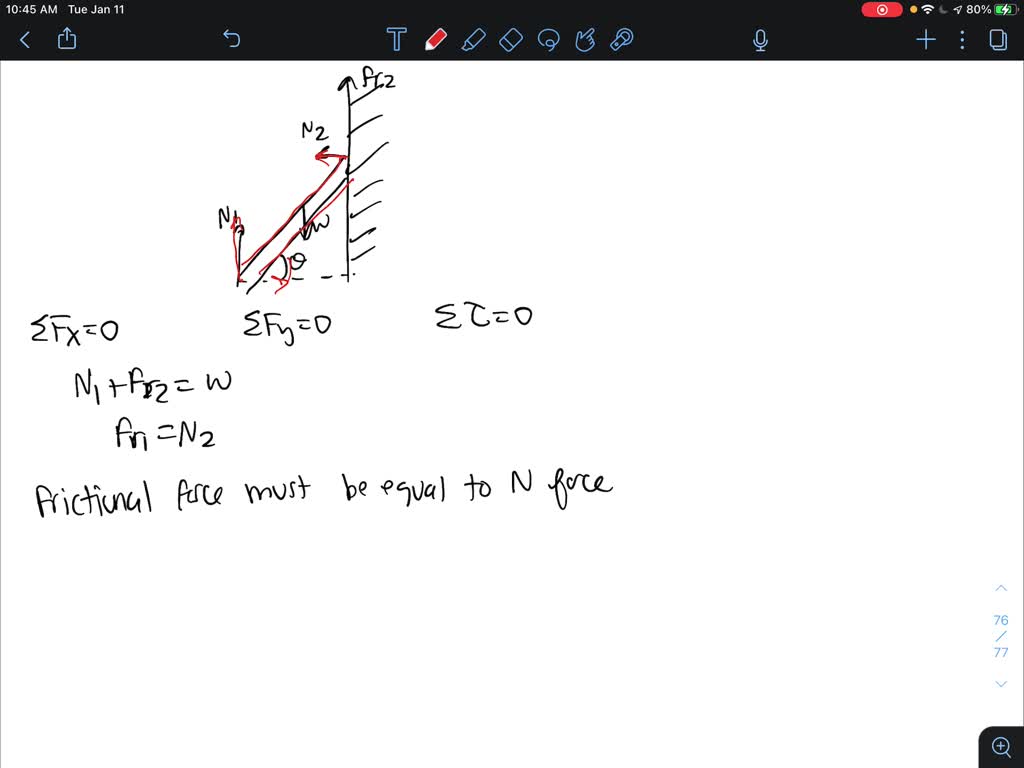 10:45 AM Tue Jan 11
80%
T
Fr2
N2
N1
W
θ
ΣFx=0 ΣFy=0 Στ=0
N1+Fr2=W
Fr1=N2
Frictional force must be equal to N force
76
/
77